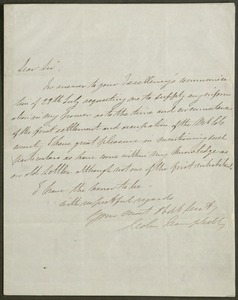 Dear Sir
In answer to your Excellency's communica
tion of 29th July requesting me to supply any inform
ation in my power as to the time and circumstances
of the first settlement and occupation of the
I have great pleasure in mentioning such
particulars as have come within my knowledge as
an old settler although not one of the first inhabitants
I have the honor to be
with respectful regards
Your most Obdt Servt
Colin Campbell